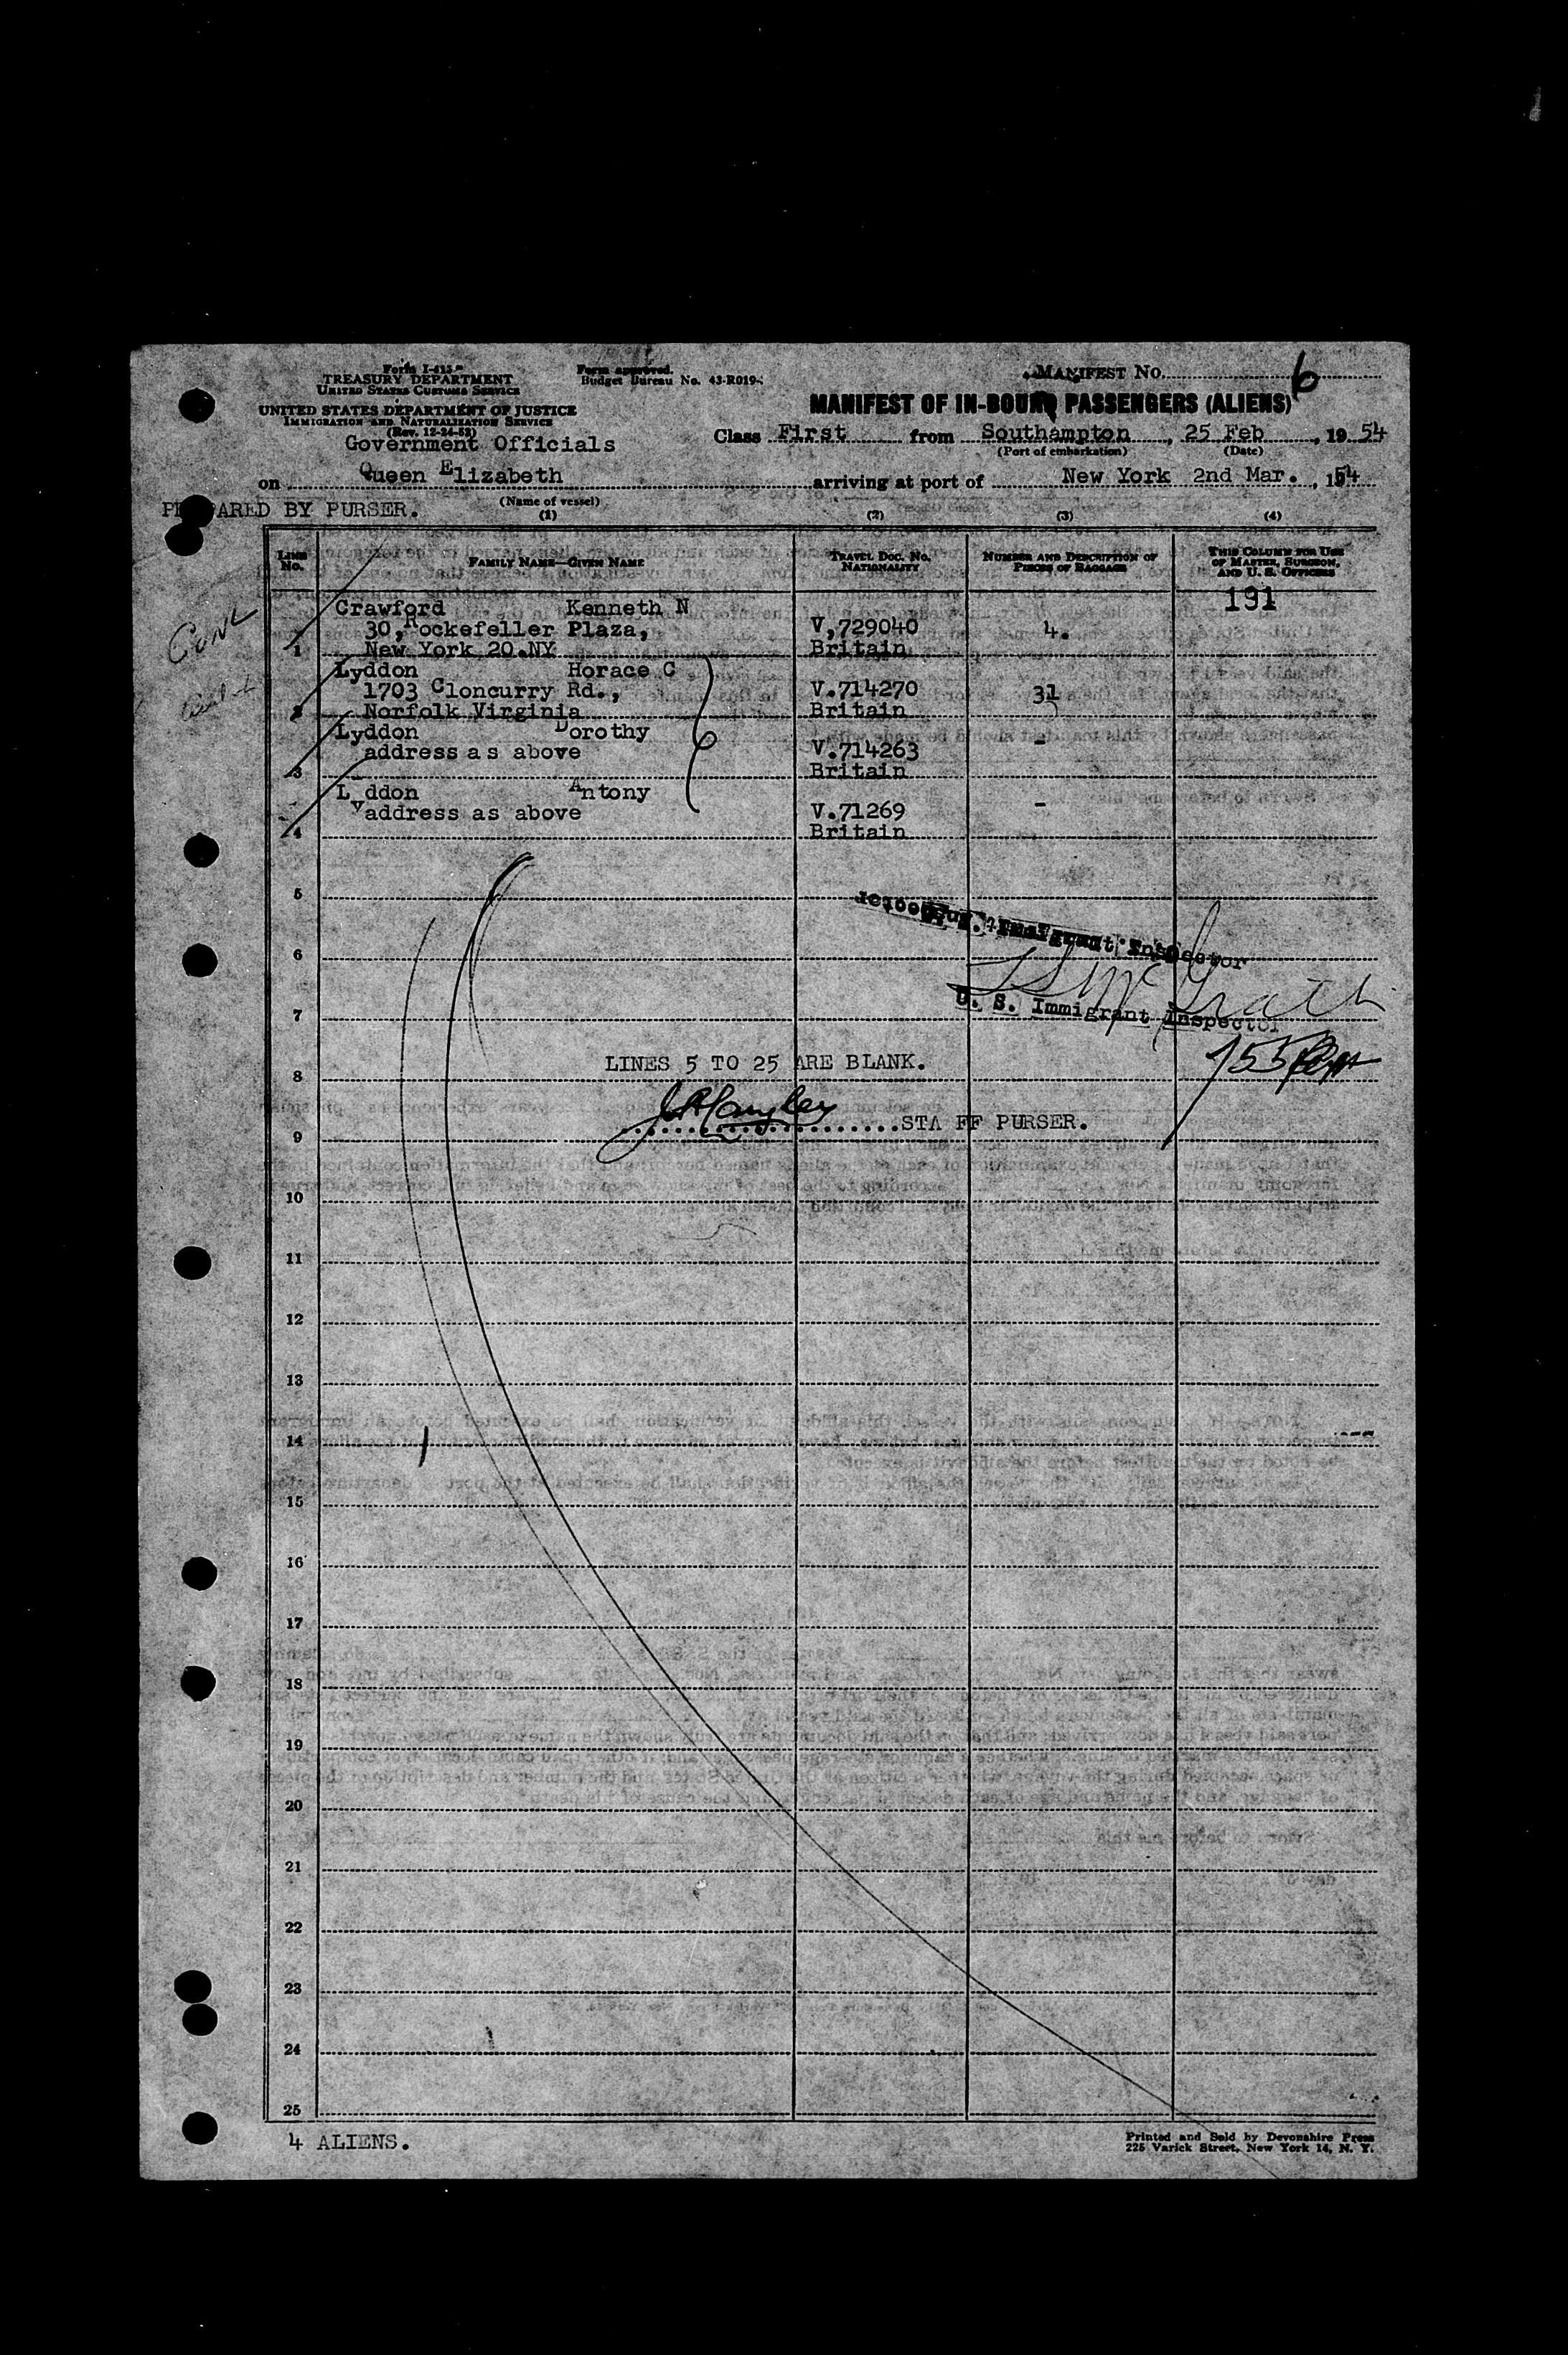 Form I-415
TREASURY DEPARTMENT
UNITED STATES CUSTOMS SERVICE
Form approved.
Budget Bureau No. 43-R019-
MANIFEST No. 6
UNITED STATES DEPARTMENT OF JUSTICE
IMMIGRATION AND NATURALIZATION SERVICE
(Rev. 12-24-52)
MANIFEST OF IN-BOUND PASSENGERS (ALIENS)
Government Officials
Class First from Southampton, 25 Feb, 19 54
(Port of embarkation) (Date)
on Queen Elizabeth arriving at port of New York 2nd Mar., 1954
(Name of vessel)
PREPARED BY PURSER.
(1) (2) (3) (4)
LINE No. FAMILY NAME—GIVEN NAME TRAVEL DOC. NO. NATIONALITY NUMBER AND DESCRIPTION OF PIECES OF BAGGAGE THIS COLUMN FOR USE OF MASTER, SURGEON, AND U. S. OFFICERS
191
Crawford Kenneth N
30, Rockefeller Plaza, V,729040 4.
1 New York 20.NY Britain
Lyddon Horace C
1703 Cloncurry Rd., V.714270 31
2 Norfolk Virginia Britain
Lyddon Dorothy
address as above V.714263 -
3 Britain
Lyddon Antony
address as above V.71269 -
4 Britain
5
U. S. Immigrant Inspector
6
7 U. S. Immigrant Inspector
LINES 5 TO 25 ARE BLANK.
8
STAFF PURSER.
9
10
11
12
13
14
15
16
17
18
19
20
21
22
23
24
25
4 ALIENS.
Printed and Sold by Devonshire Press
225 Varick Street, New York 14, N. Y.